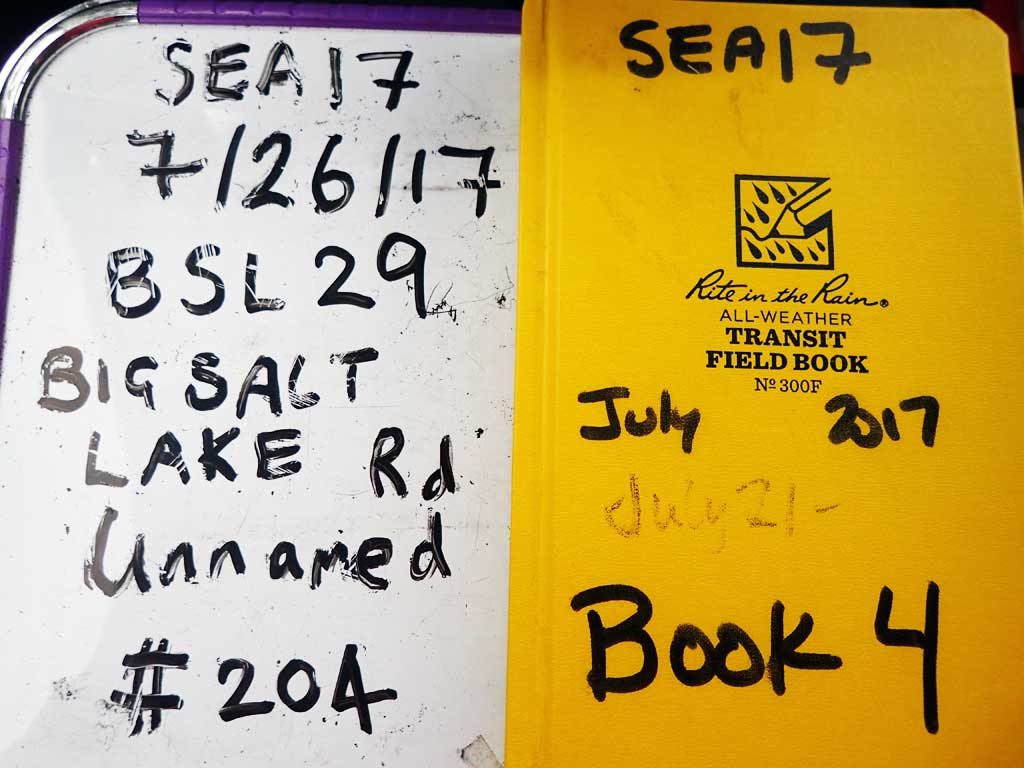 SEA17
7/26/17
BSL 29
BIG SALT
LAKE Rd
Unnamed
# 204
SEA17
Rite in the Rain®
ALL-WEATHER
TRANSIT
FIELD BOOK
Nº 300F
July 2017
July 21-
Book 4